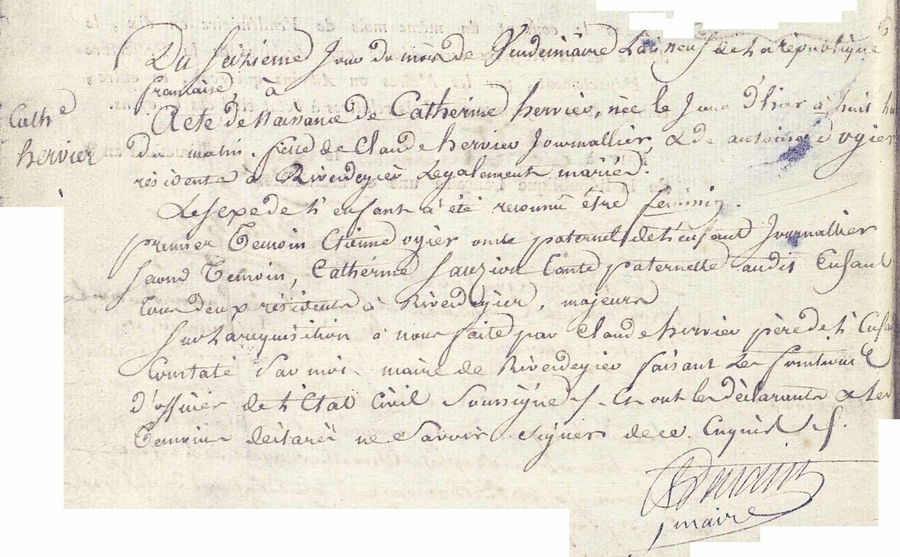 Du Seizième Jour du mois de Vendemiaire L'an neuf de La république
francaise,
Acte de Naissance de Catherine hervier, née le Jour d'hier à huit
du matin. fille de Claude hervier Journallier, & de antoinette ogier
résidents à Riverdegier Legalement mariés.
Le Sexe de L'enfant a été reconnu être feminin.
premier Temoin Etienne ogier oncle paternel de L'enfant Journallier
second Temoin, Catherine Tante paternelle audit Enfant
tous deux résidents à Rivedegier, majeurs
Sur La requisition à nous faite par Claude hervier père de L'Enfant
Constaté par moi maire de Rivedegier faisant Les fonctions
d'officier de L'Etat Civil Soussigné Et ont les déclarants & les
Temoins déclarés ne Savoir Signer de ce Enquis
maire
Cathe
hervier